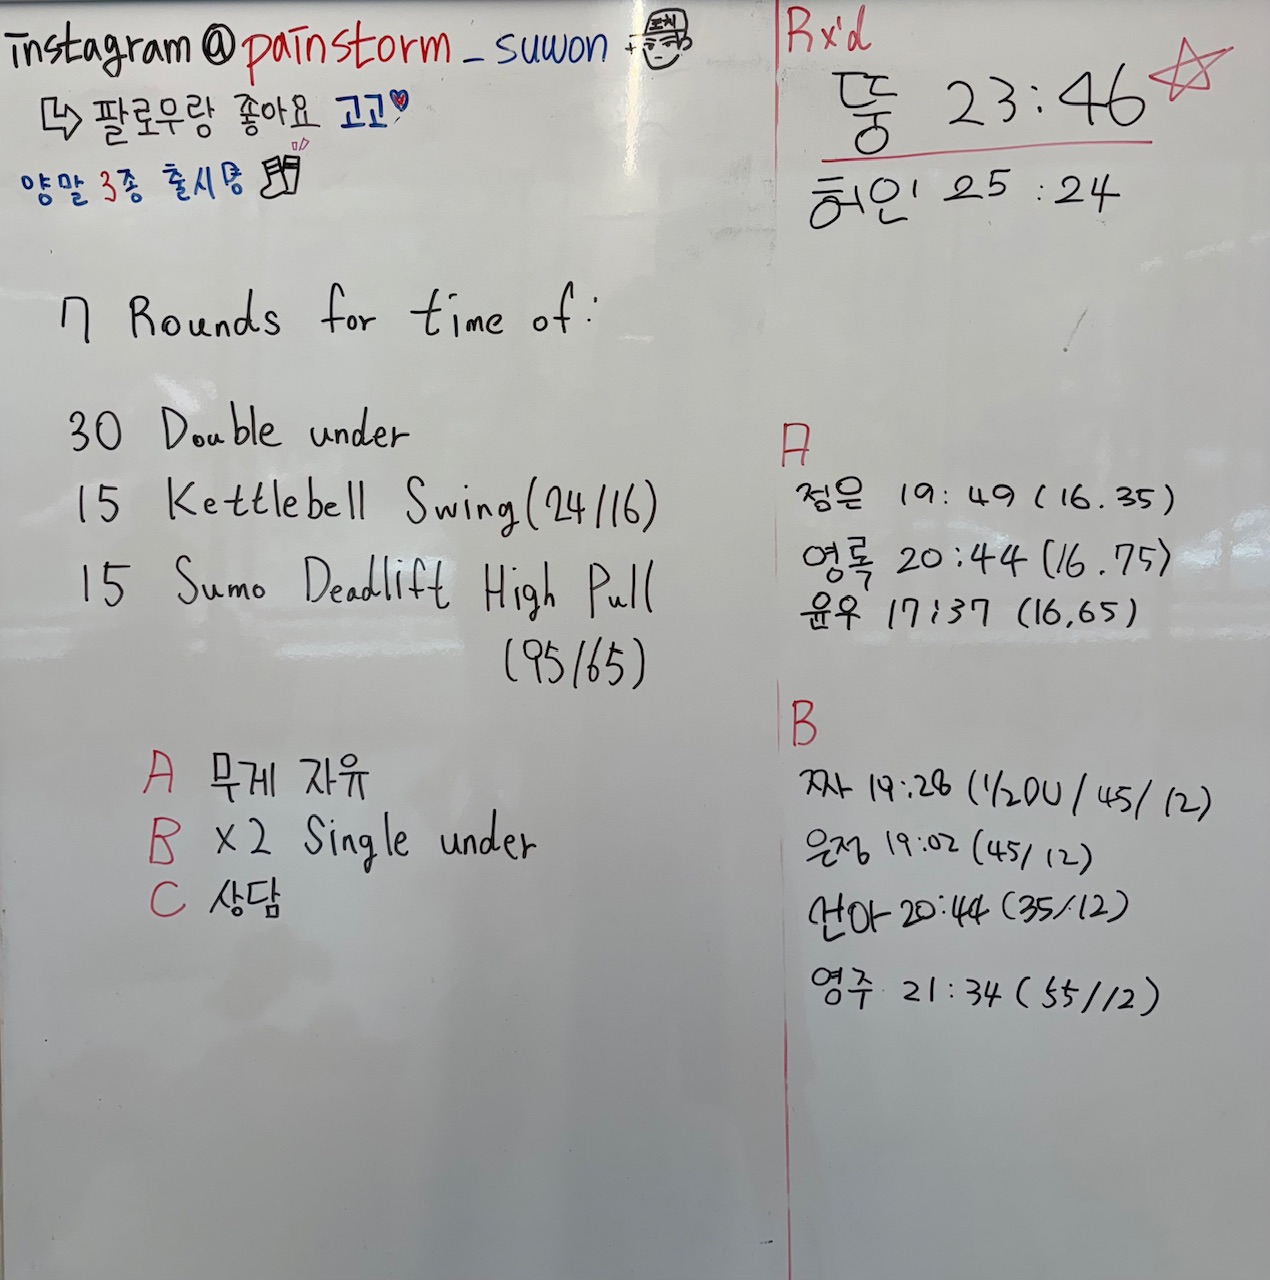 instagram@painstorm_suwon
팔로우랑 좋아요 고고
양말 3종 출시중
7 Rounds for time of:
30 Double under
15 Kettlebell Swing(24/16)
15 Sumo Deadlift High Pull
(95/65)
A 무게 자유
B x2 Single under
C 상담
Rx'd
뚱 23:46
허인 25:24
A
정은 19:49 (16.35)
영록 20:44 (16.75)
윤우 17:37 (16,65)
B
짜 19:28 (1/2DU/45/12)
은정 19:02 (45/12)
선아 20:44 (35/12)
영주 21:34 (55/12)